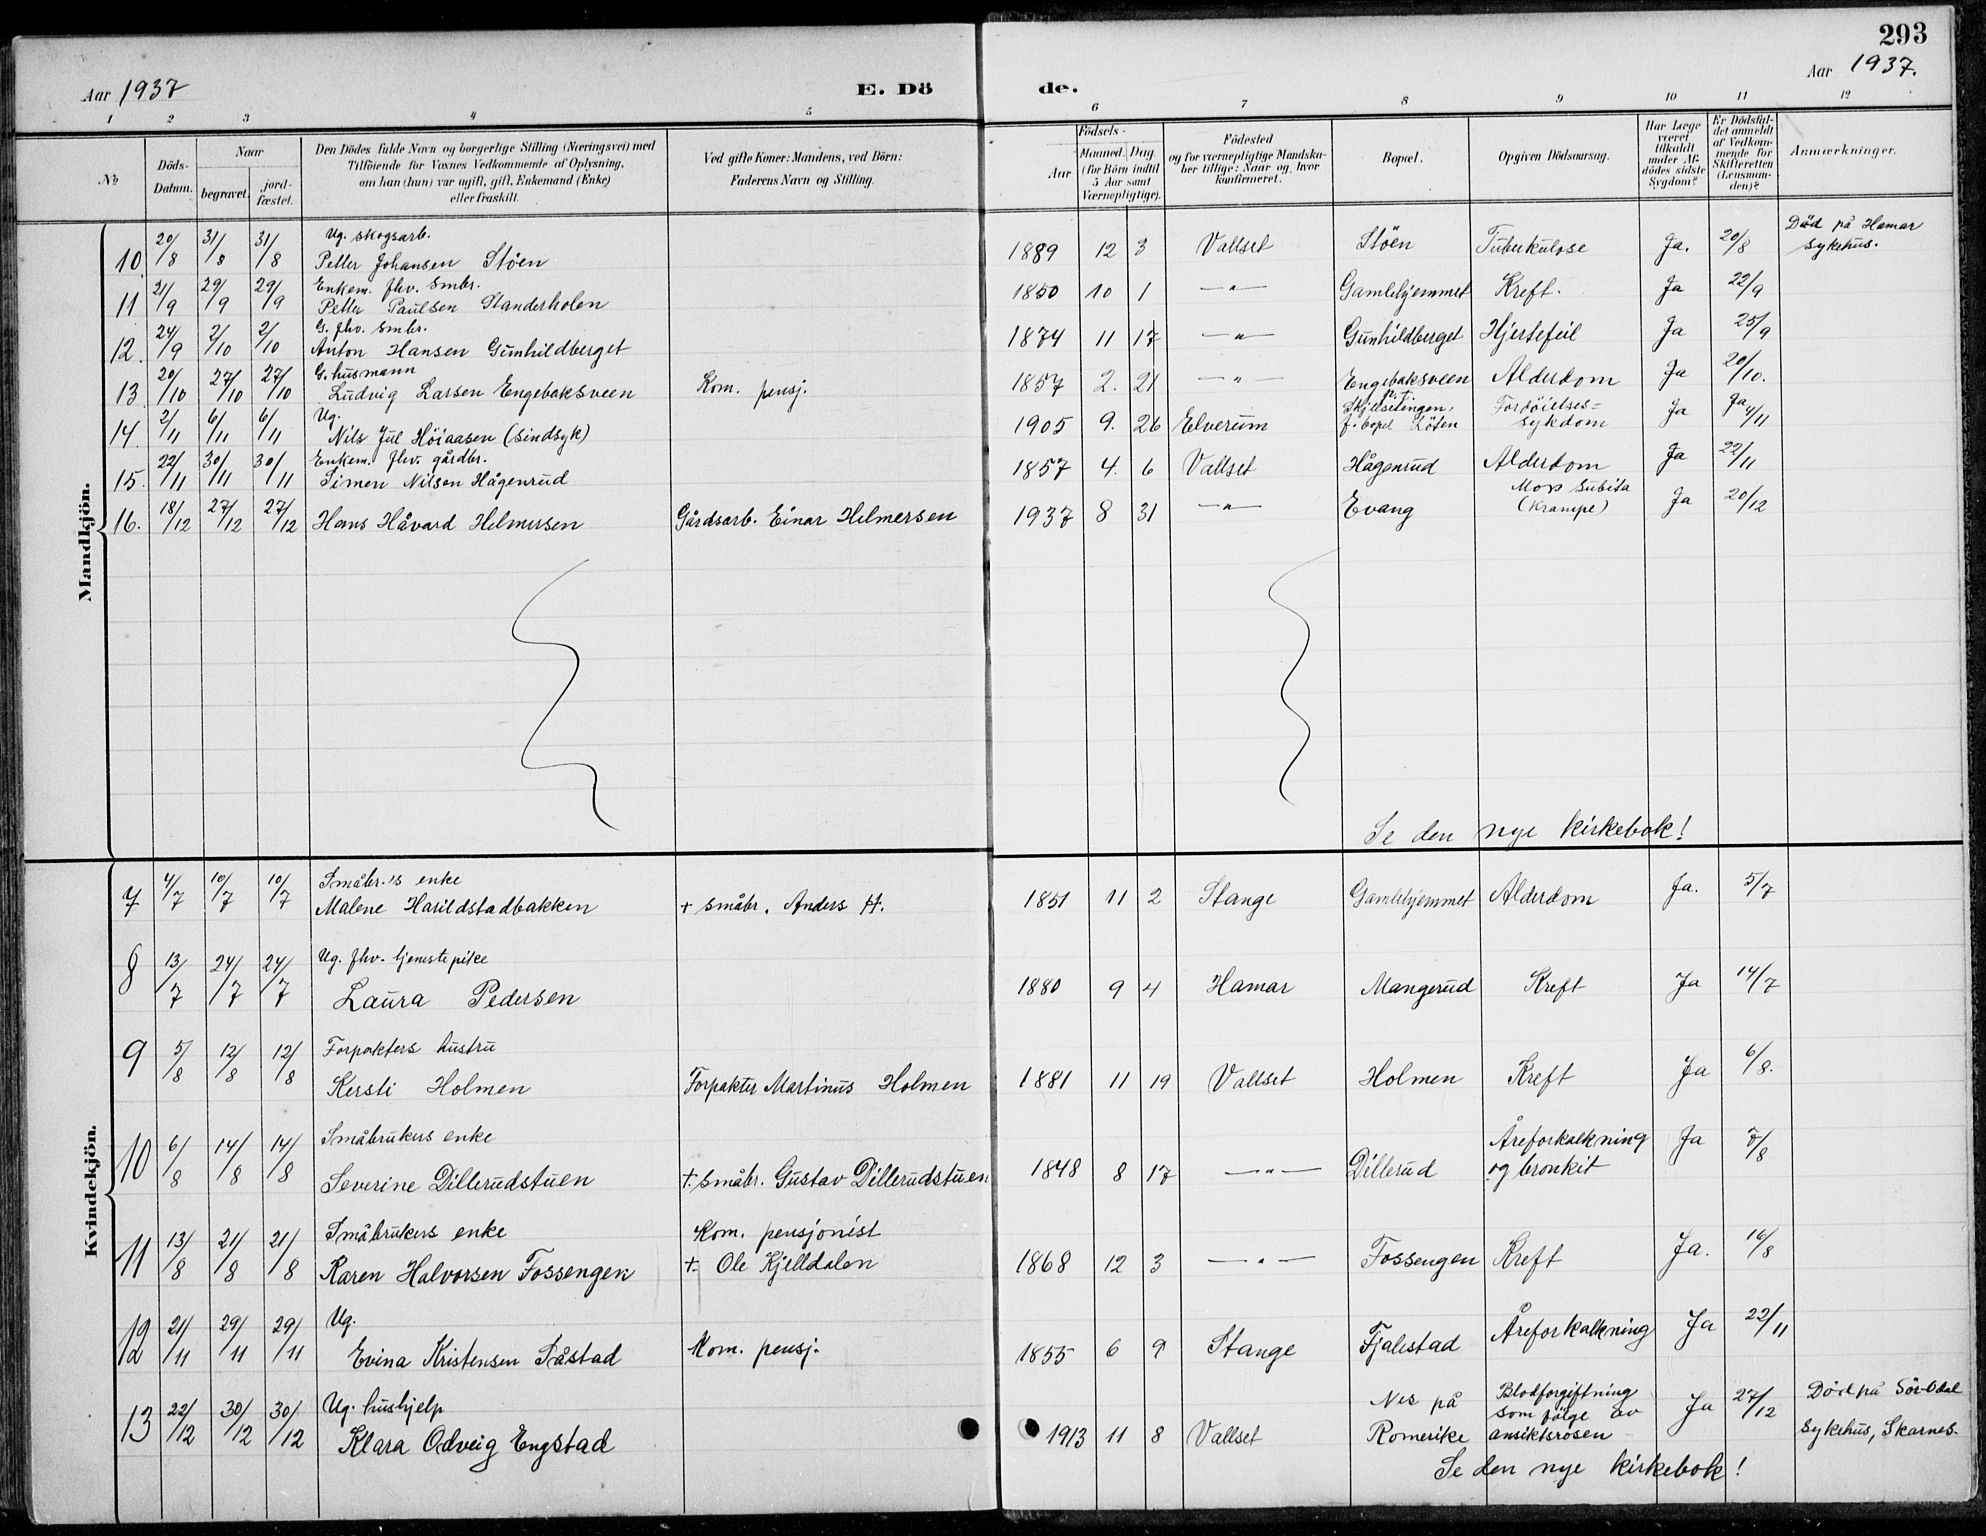 293
Aar 1937
E. Dö
de.
Aar 1937.
1 2 3 4 5 6 7 8 9 10 11 12
No
Döds-Datum.
Naar
begravet.
jord-fæstet.
Den Dödes fulde Navn og borgerlige Stilling (Næringsvei) med
Tilföiende for Voxnes Vedkommende af Oplysning,
om han (hun) var ugift, gift, Enkemand (Enke)
eller fraskilt.
Ved gifte Koner: Mandens, ved Börn:
Faderens Navn og Stilling.
Födsels-
Aar
Maaned. Dag.
(for Börn indtil
5 Aar samt
Værnepligtige).
Födested
og for værnepligtige Mandska-
ber tillige: Naar og hvor
konfirmeret.
Bopæl.
Opgiven Dödsaarsag.
Har Læge
været
tilkaldt
under Af-
dödes sidste
Sygdom?
Er Dödsfal-
det anmeldt
af Vedkom-
mende for
Skifteretten
(Lensman-
den)?
Anmærkninger.
Mandkjön.
10 20/8 31/8 31/8 Ug. skogsarb.
Petter Johansen Stöen 1889 12 3 Vallset Stöen Tuberkulose Ja. 20/8 Död på Hamar
sykehus.
11 21/9 29/9 29/9 Enkem. fhv. smbr.
Petter Paulsen Standerholen 1850 10 1 —"— Gamlehjemmet Kreft. Ja 22/9
12. 24/9 2/10 2/10 G. fhv. smbr.
Anton Hansen Gunhildberget 1874 11 17 —"— Gunhildberget Hjertefeil Ja 25/9
13 20/10 27/10 27/10 G. husmann
Ludvig Larsen Engebaksveen Kom. pensj. 1857 2. 21 —"— Engebaksveen Alderdom Ja 20/10.
14. 2/11 6/11 6/11 Ug.
Nils Jul Höiaasen (sindsyk) 1905 9. 26 Elverum p.t. Skjelsetengen,
f. bopel Löten Fordöielses=
sykdom Ja Ja 4/11
15. 22/11 30/11 30/11 Enkem. fhv. gårdbr.
Simen Nilsen Hågenrud 1857 4. 6 Vallset Hågenrud Alderdom Ja 22/11
16. 18/12 27/12 27/12 Hans Håvard Helmersen Gårdsarb. Einar Helmersen 1937 8 31 —"— Evang Mors subita
(Krampe) Ja 20/12
Se den nye kirkebok!
Kvindekjön.
7 4/7 10/7 10/7 Småbr.'s enke
Malene Harildstadbakken + småbr. Anders H. 1851 11 2 Stange Gamlehjemmet Alderdom Ja. 5/7
8 13/7 24/7 24/7 Ug. fhv. tjenestepike
Laura Pedersen 1880 9 4 Hamar Mangerud Kreft Ja 14/7
9 5/8 12/8 12/8 Forpakters hustru
Kersti Holmen Forpakter Martinus Holmen 1881 11 19 Vallset Holmen Kreft Ja 6/8.
10 6/8 14/8 14/8 Småbrukers enke
Severine Dillerudstuen +. småbr. Gustav Dillerudstuen 1848 8 17 —"— Dillerud Åreforkalkning
og bronkit Ja 7/8
11 13/8 21/8 21/8 Småbrukers enke Kom. pensjonist
Karen Halvorsen Fossengen +. Ole Kjelldalen 1868 12 3 —"— Fossengen Kreft Ja. 16/8
12 21/11 29/11 29/11 Ug.
Evina Kristensen Såstad Kom. pensj. 1855 6 9 Stange Fjalestad Åreforkalkning Ja 22/11
13 22/12 30/12 30/12 Ug. hushjelp
Klara Odveig Engstad 1913 11 8 Vallset Nes på
Romerike Blodforgiftning
som fölge av
ansiktsrosen Ja 27/12 Död på Sör-Odal
sykehus, Skarnes.
Se den nye kirkebok!